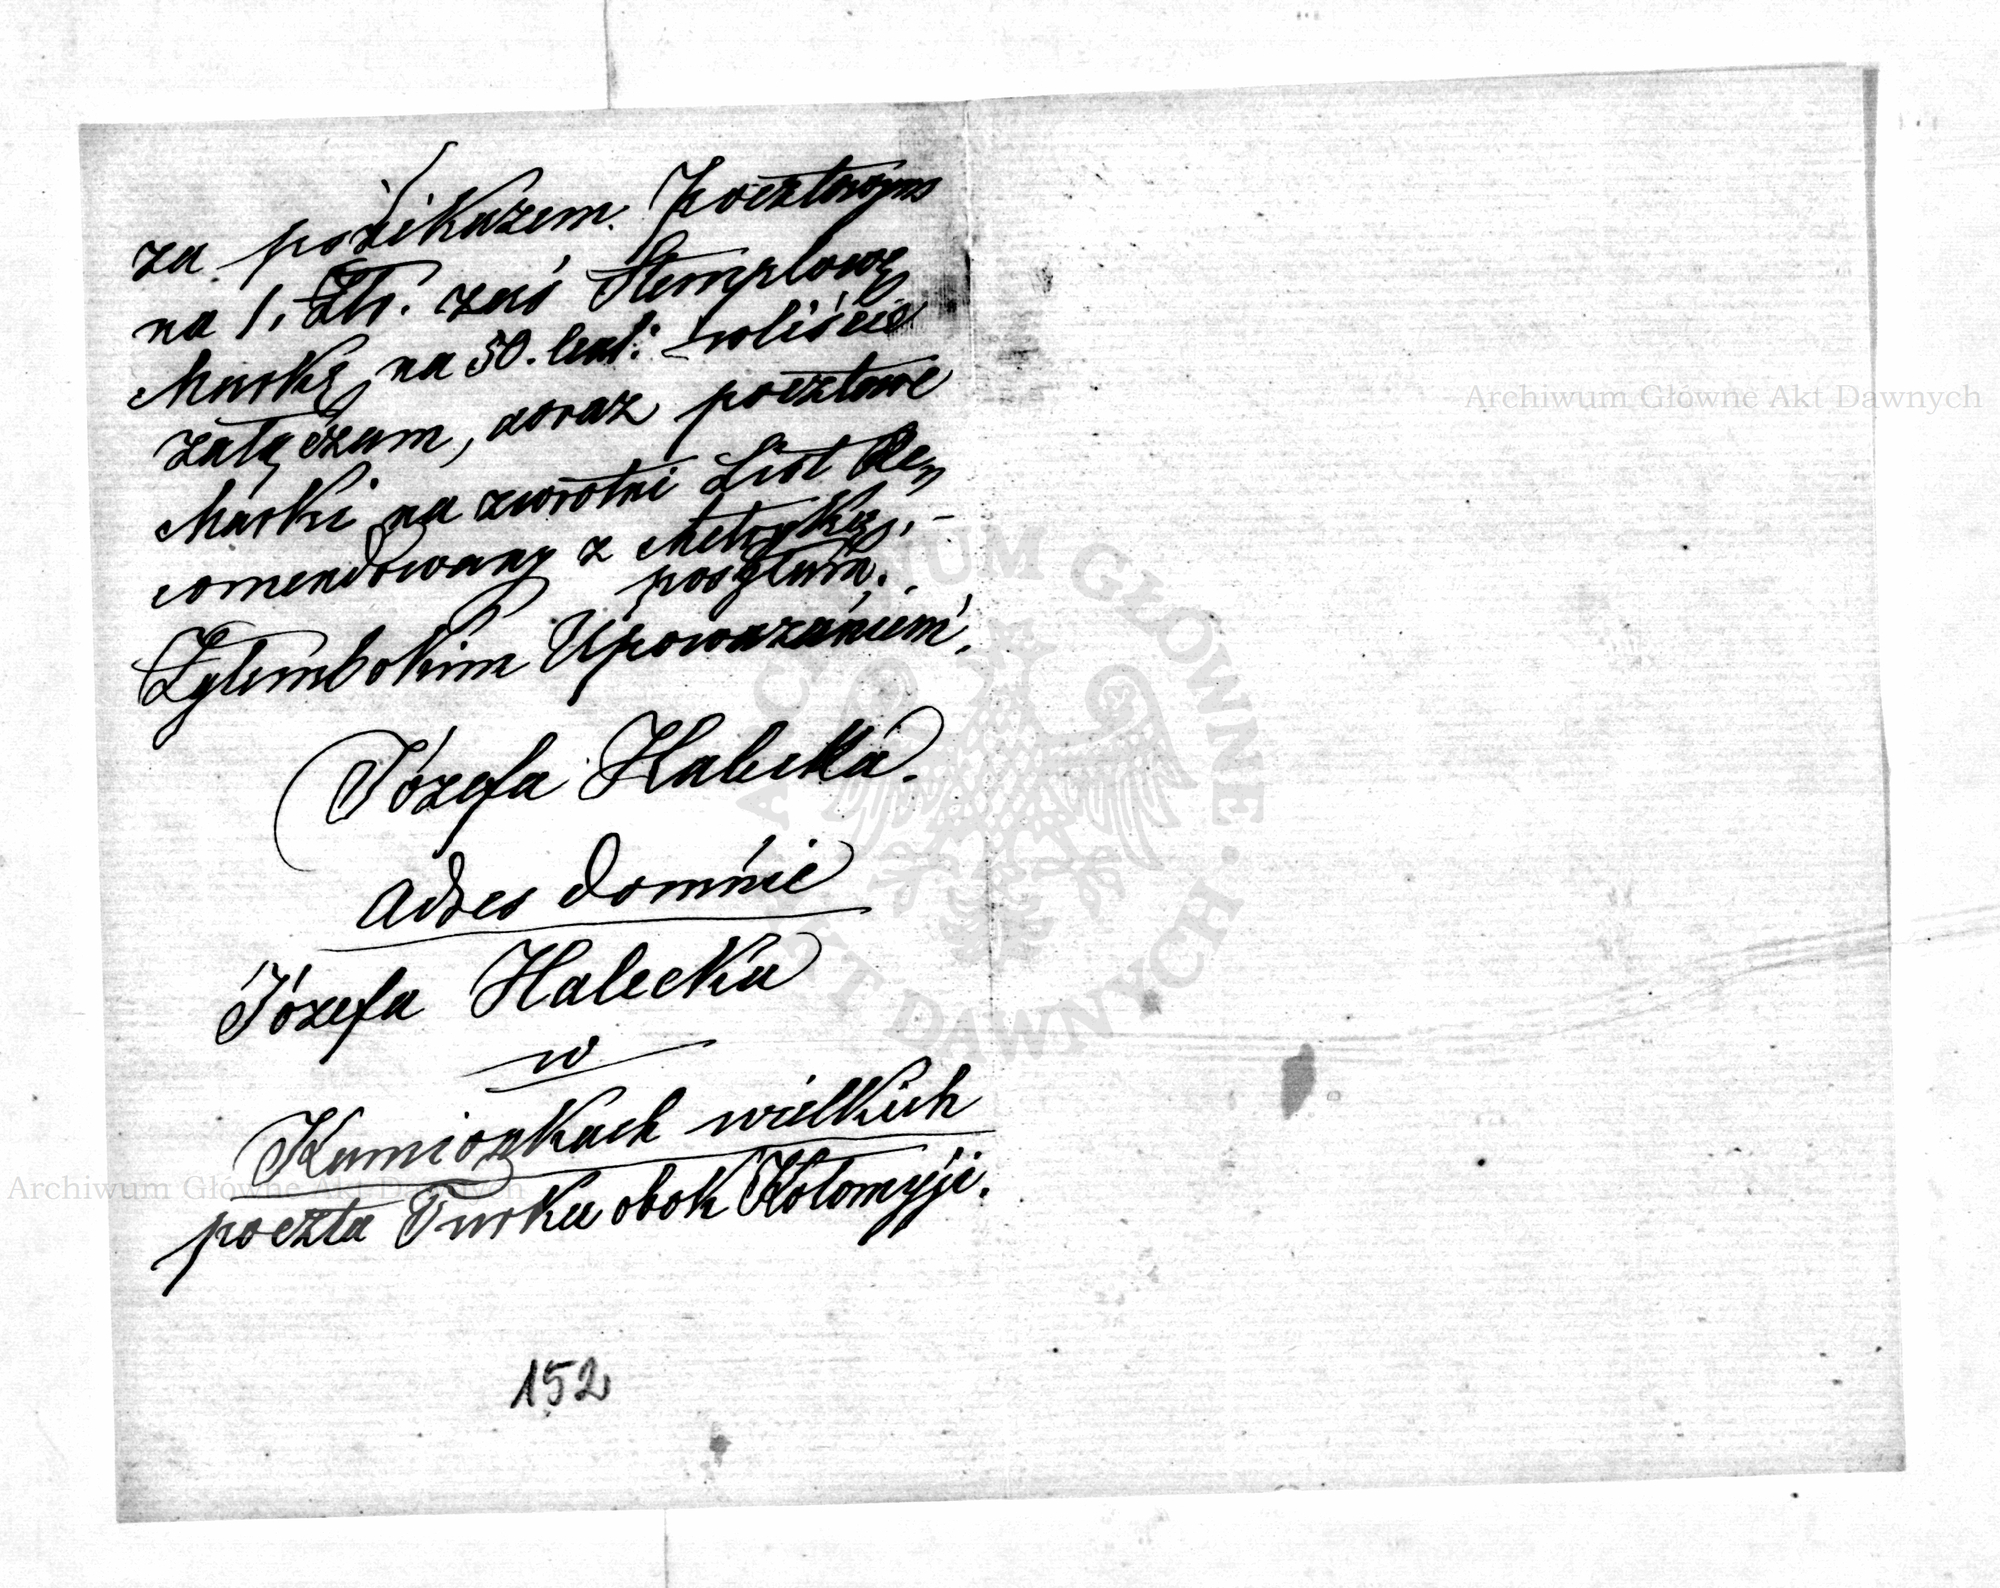 za posikazem. Pocztowym
na 1. Złr. zaś Stemplową
Markę na 50. cent: wliście
załączam, aoraz pocztowe
Marki na zwrotni List Re„
comendowany z Metryką, –
posyłam.
Zglembokim Upoważániem.
Józefa Halecka.
Adres domńie
Józefa Halecka
w
Kamionkach wielkich
poczta Turka obok Kołomyji.
152
Archiwum Główne Akt Dawnych
Archiwum Główne Akt Dawnych
ARCHIWUM GŁÓWNE AKT DAWNYCH